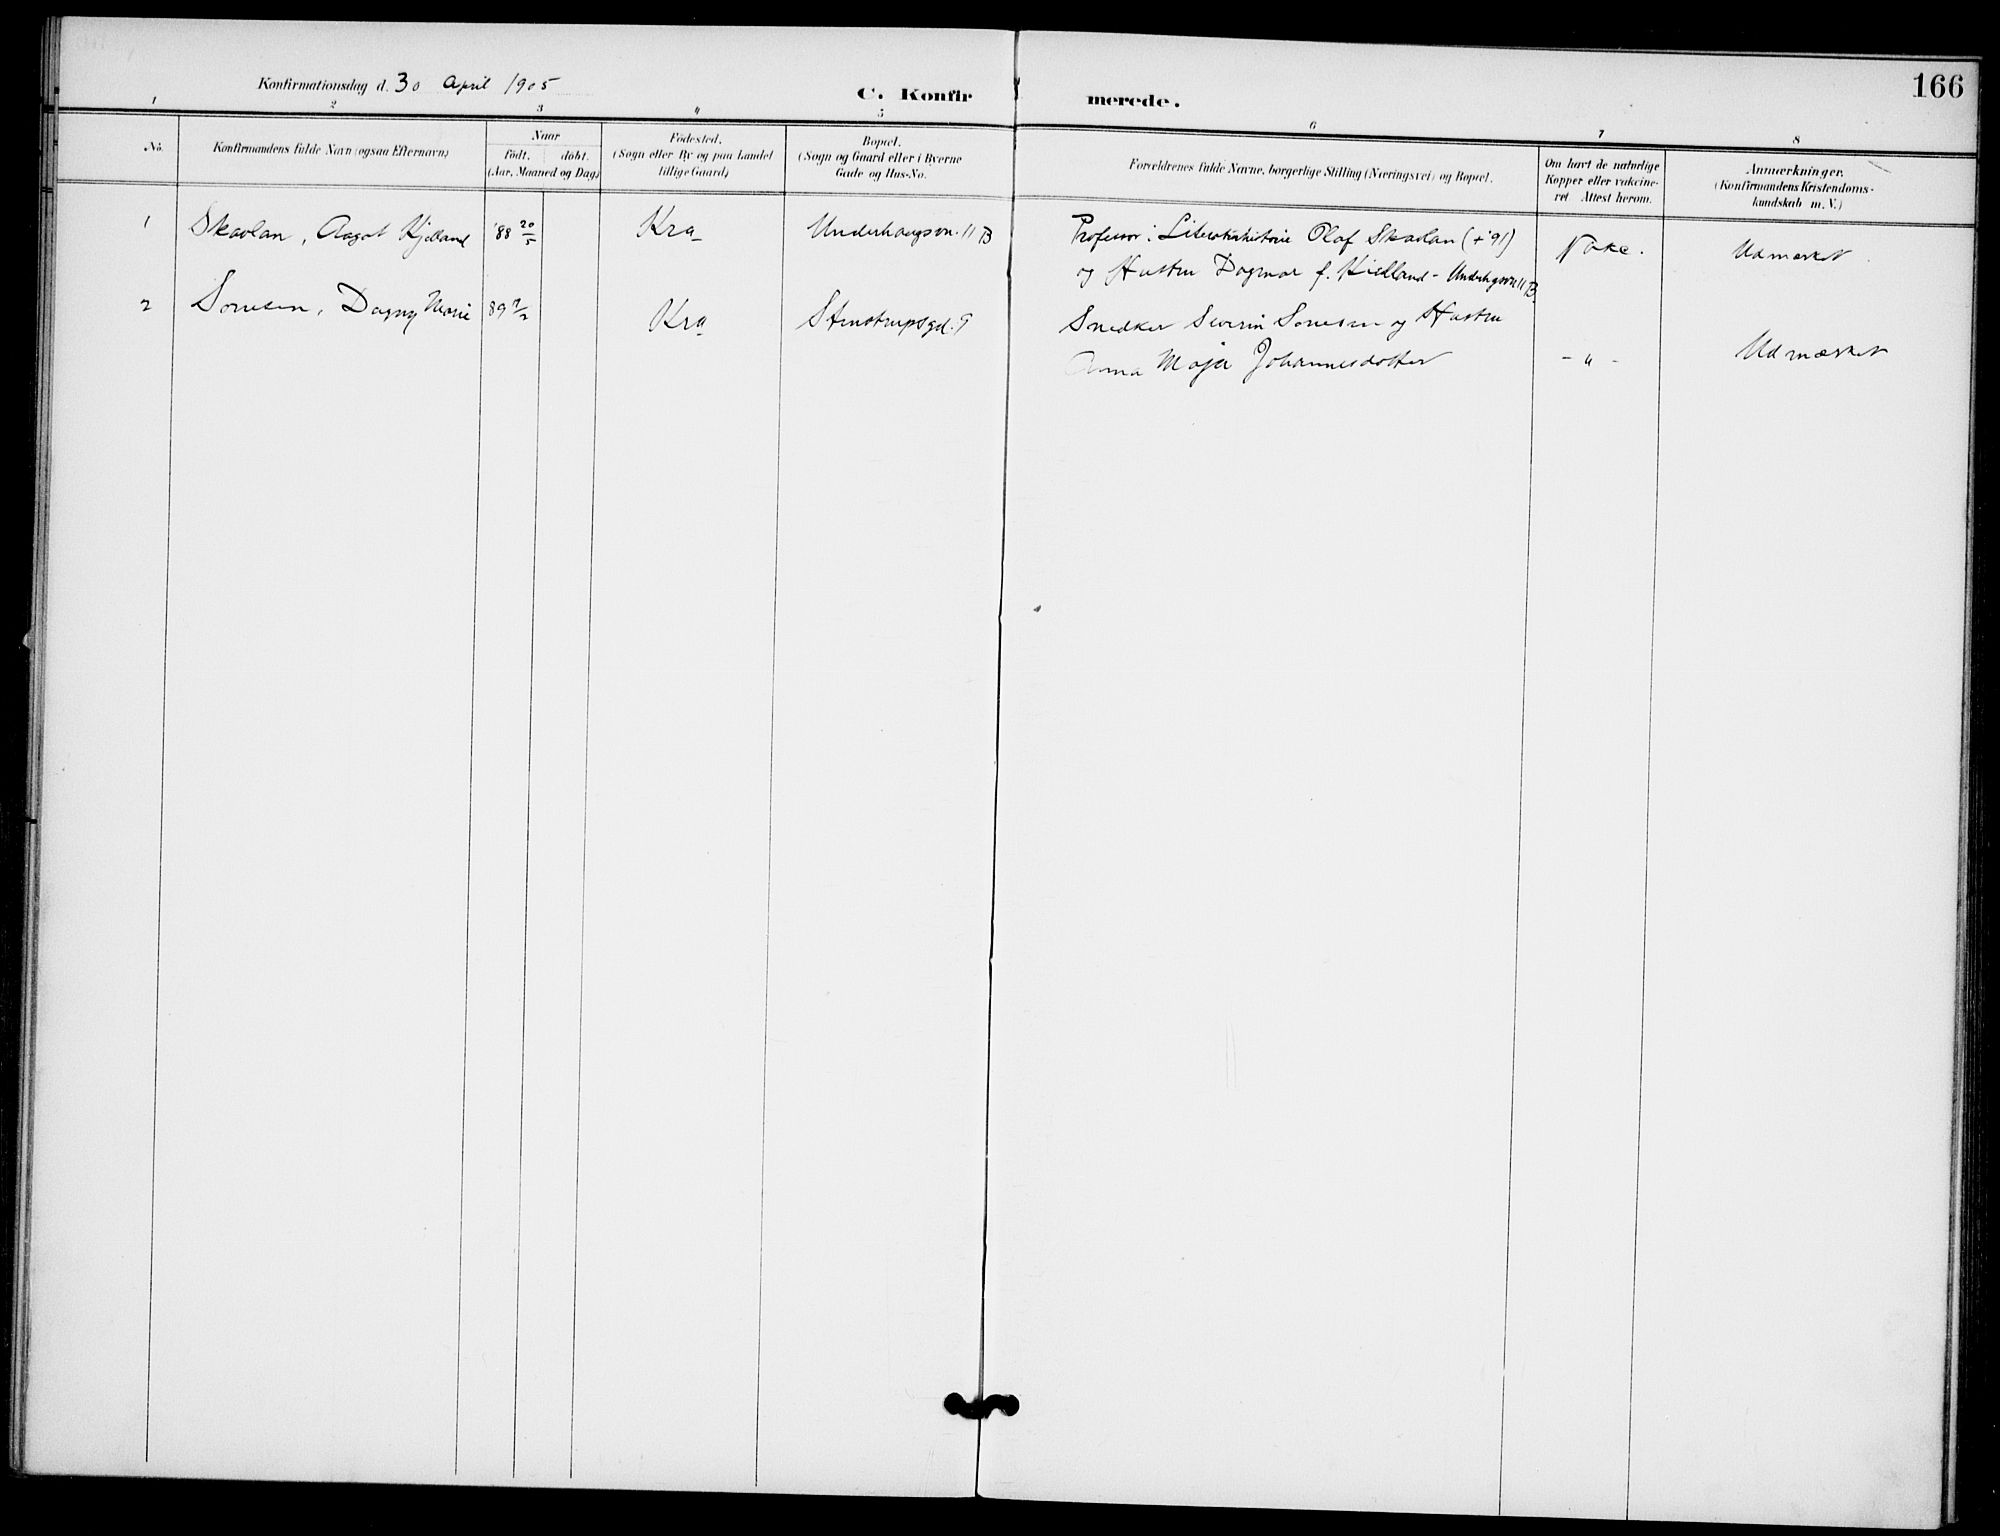 166
Konfirmationsdag d. 30 April 1905
C. Konfirmerede.
1 2 3 4 5 6 7 8
No.
Konfirmandens fulde Navn (ogsaa Efternavn)
Naar
födt. döbt.
(Aar, Maaned og Dag)
Födested.
(Sogn eller By og paa Landet
tillige Gaard)
Bopæl.
(Sogn og Gaard eller i Byerne
Gade og Hus-No.
Forældrenes fulde Navne, borgerlige Stilling (Næringsvei) og Bopæl.
Om havt de naturlige
Kopper eller vakcine-
ret Attest herom.
Anmærkninger.
(Konfirmandens Kristendoms-
kundskab m. V.)
1 Skavlan, Aagot Kjelland '88 20/5 Kra Underhaugsvn. 11 B Professor i Literaturhistorie Olaf Skavlan (+ '91) Vakc. Udmærket
og Hustru Dagmar f. Kielland - Underhgsvn 11 B
2 Sørensen, Dagny Marie 89 2/2 Kra Stenstrupsgd. 9 Snedker Severin Sørensen og Hustru
Anna Maja Johannesdotter - " - Udmærket